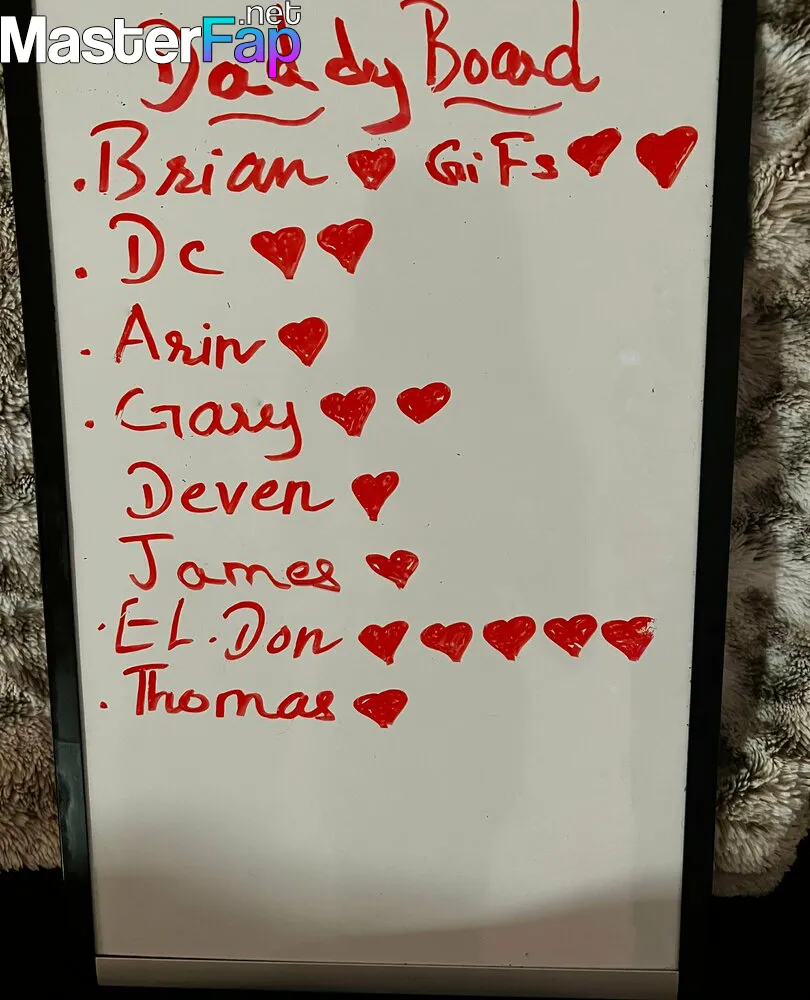 MasterFap.net
Daddy Board
.Brian ♥ GiFs ♥ ♥
. Dc ♥ ♥
. Arin ♥
. Gary ♥ ♥
Deven ♥
James ♥
. EL.Don ♥ ♥ ♥ ♥ ♥
. Thomas ♥